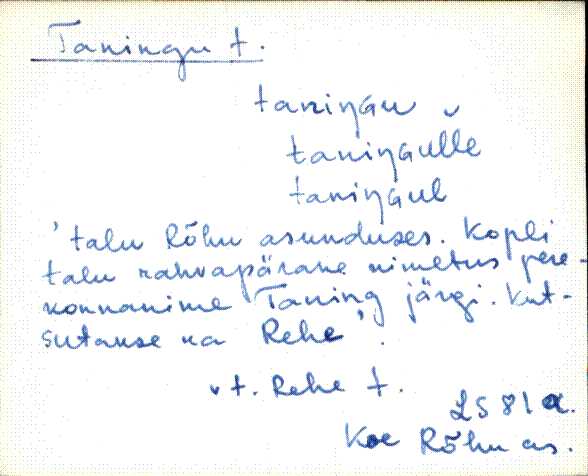 Taningu t.
taniŋɢu
taniŋɢulle
taniŋɢul
'talu Rõhu asunduses. Kopli
talu rahvapärane nimetus pere-
konnanime Taning järgi. Kut-
sutakse ka Rehe'.
vt. Rehe t.
LS 81 a.
Koe Rõhu as.